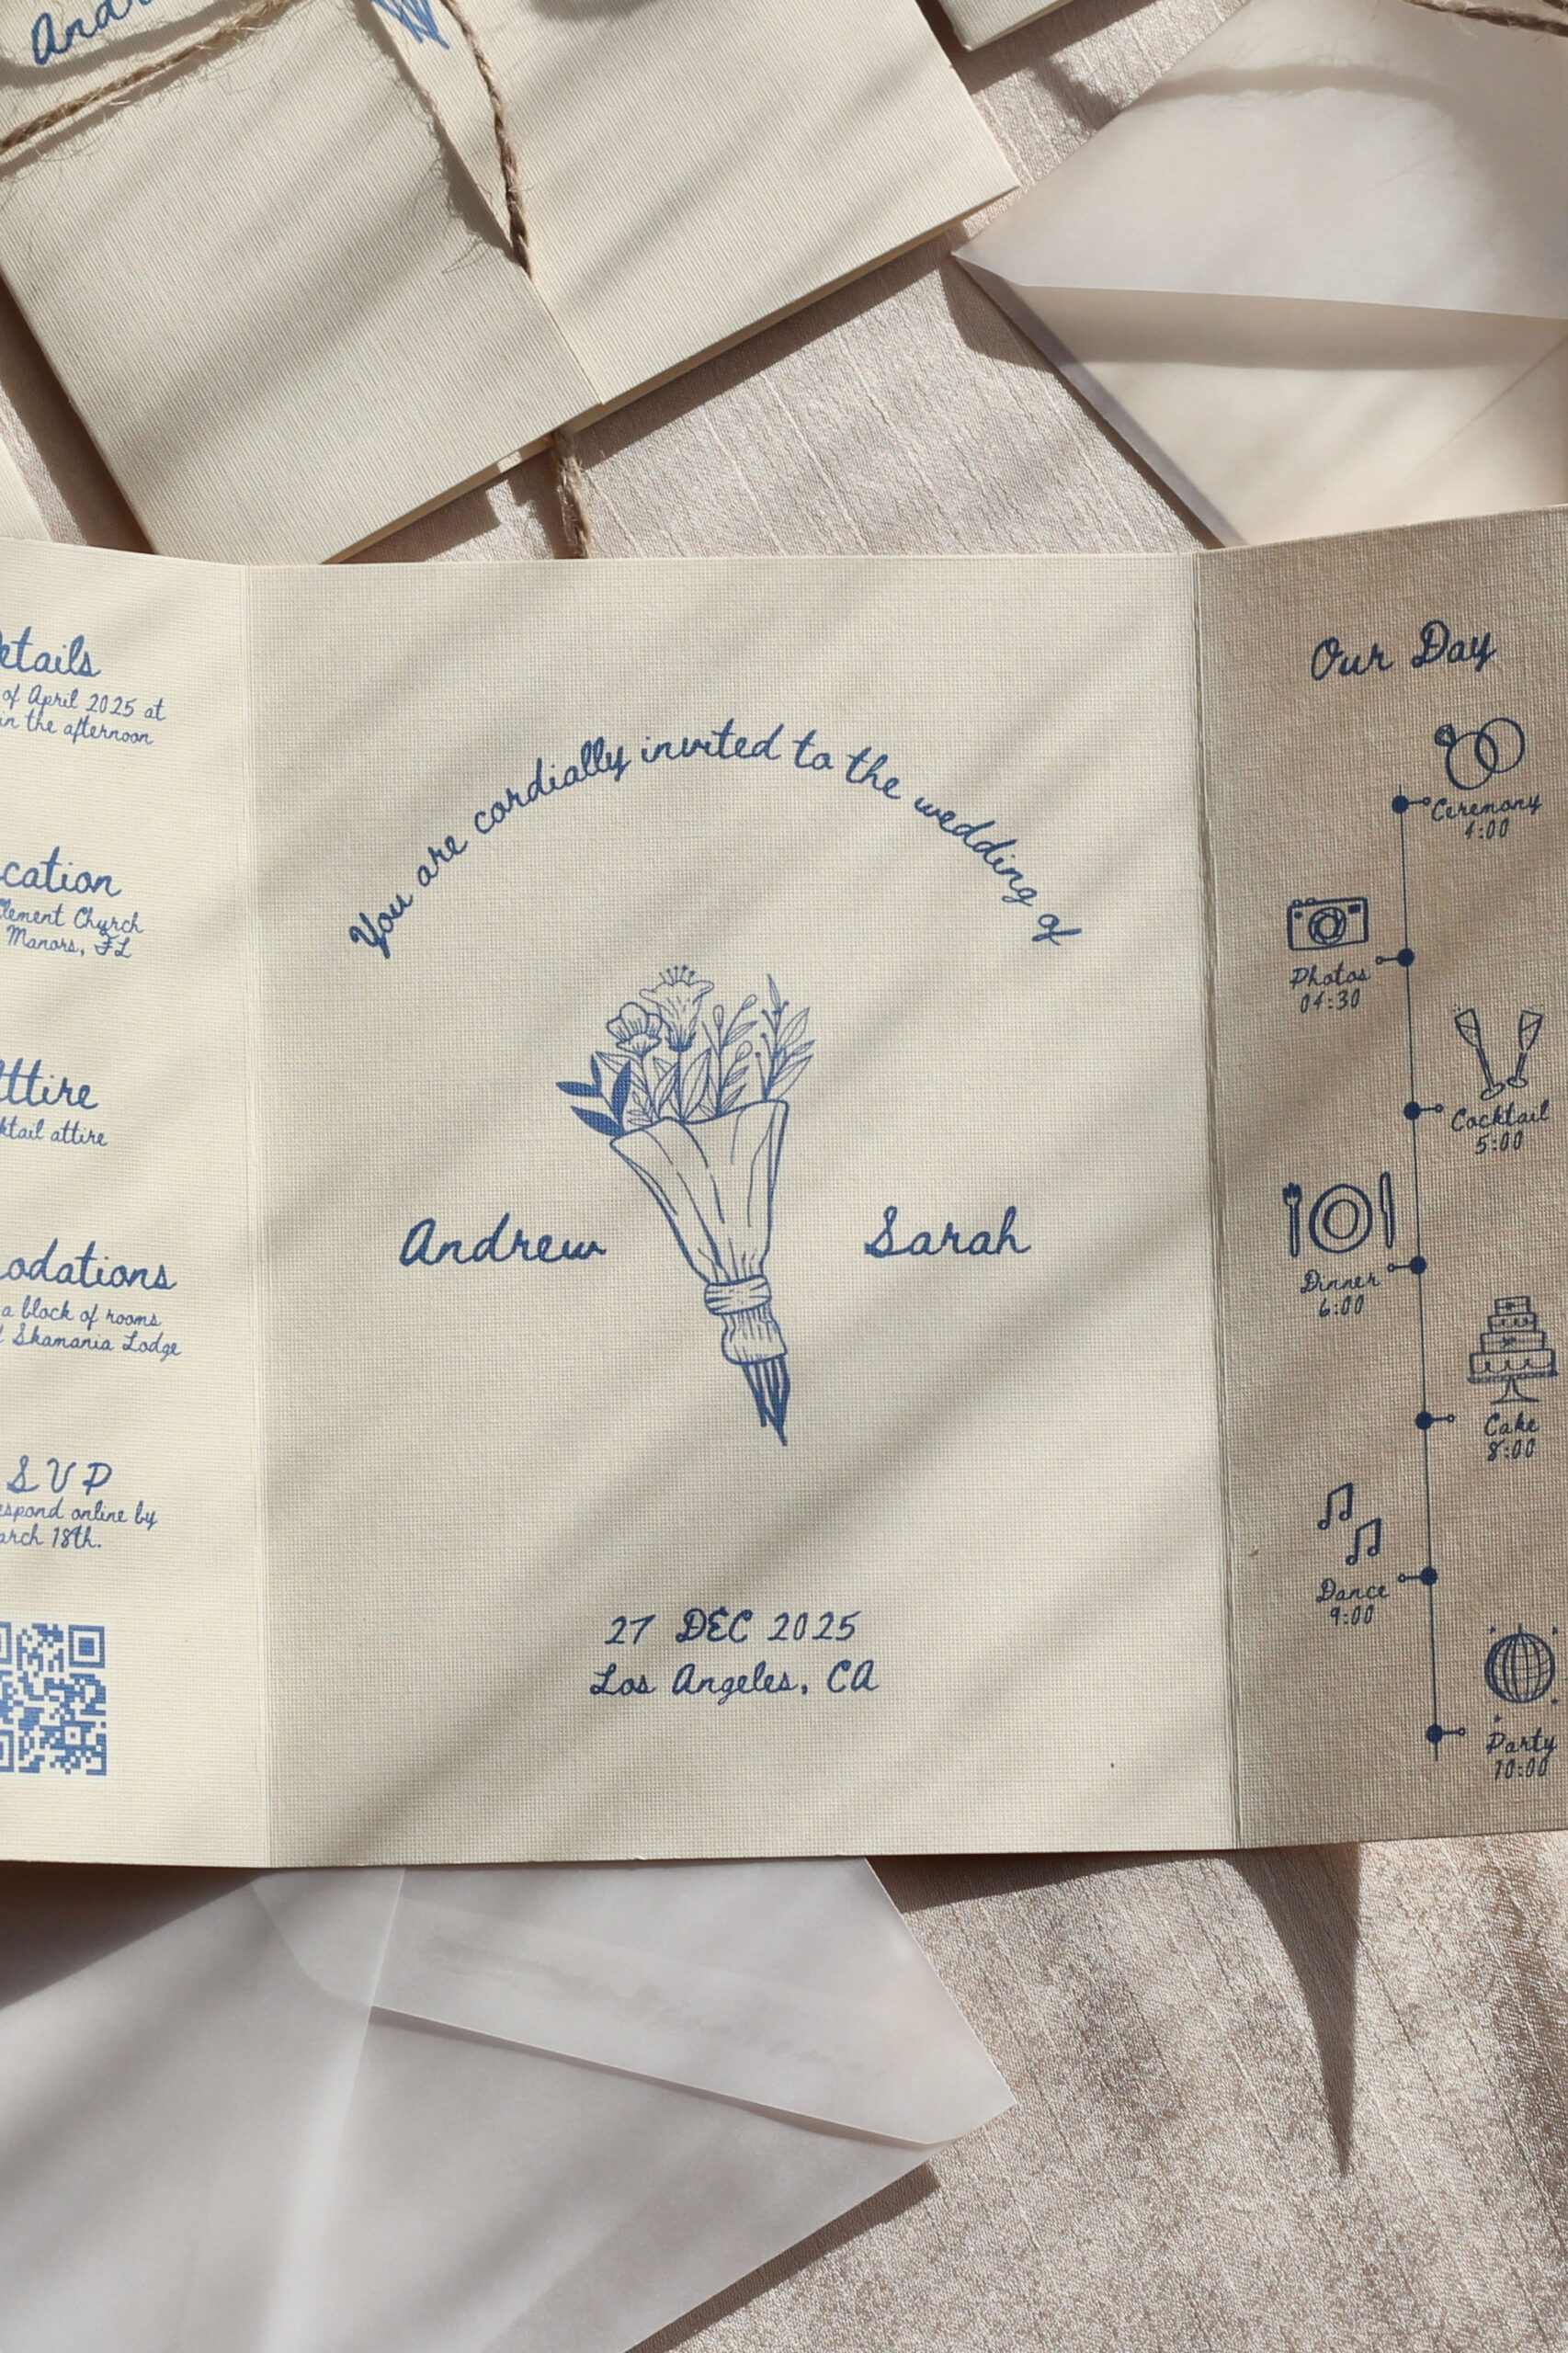 etails
of April 2025 at
in the afternoon
cation
Clement Church
Manors, FL
ttire
ktail attire
odations
a block of rooms
Skamania Lodge
SVP
espond online by
arch 18th.
You are cordially invited to the wedding of
Andrew Sarah
27 DEC 2025
Los Angeles, CA
Our Day
Ceremony
4:00
Photos
04:30
Cocktail
5:00
Dinner
6:00
Cake
8:00
Dance
9:00
Party
10:00